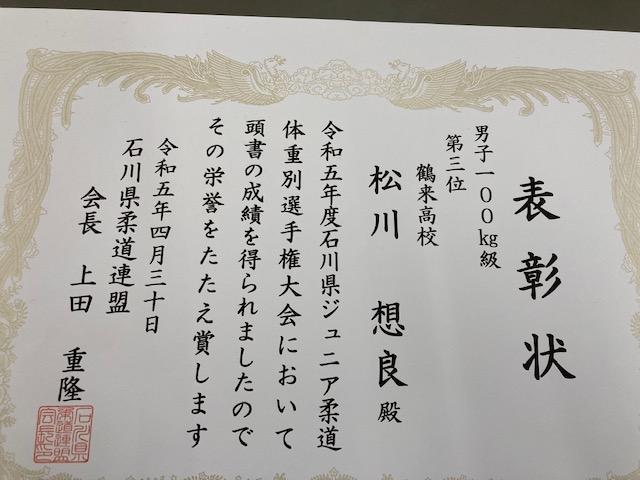 表彰状
男子一００㎏級
第三位
鶴来高校
松川 想良 殿
令和五年度石川県ジュニア柔道
体重別選手権大会において
頭書の成績を得られましたので
その栄誉をたたえ賞します
令和五年四月三十日
石川県柔道連盟
会長 上田 重隆
石川県
柔道連盟
会長之印